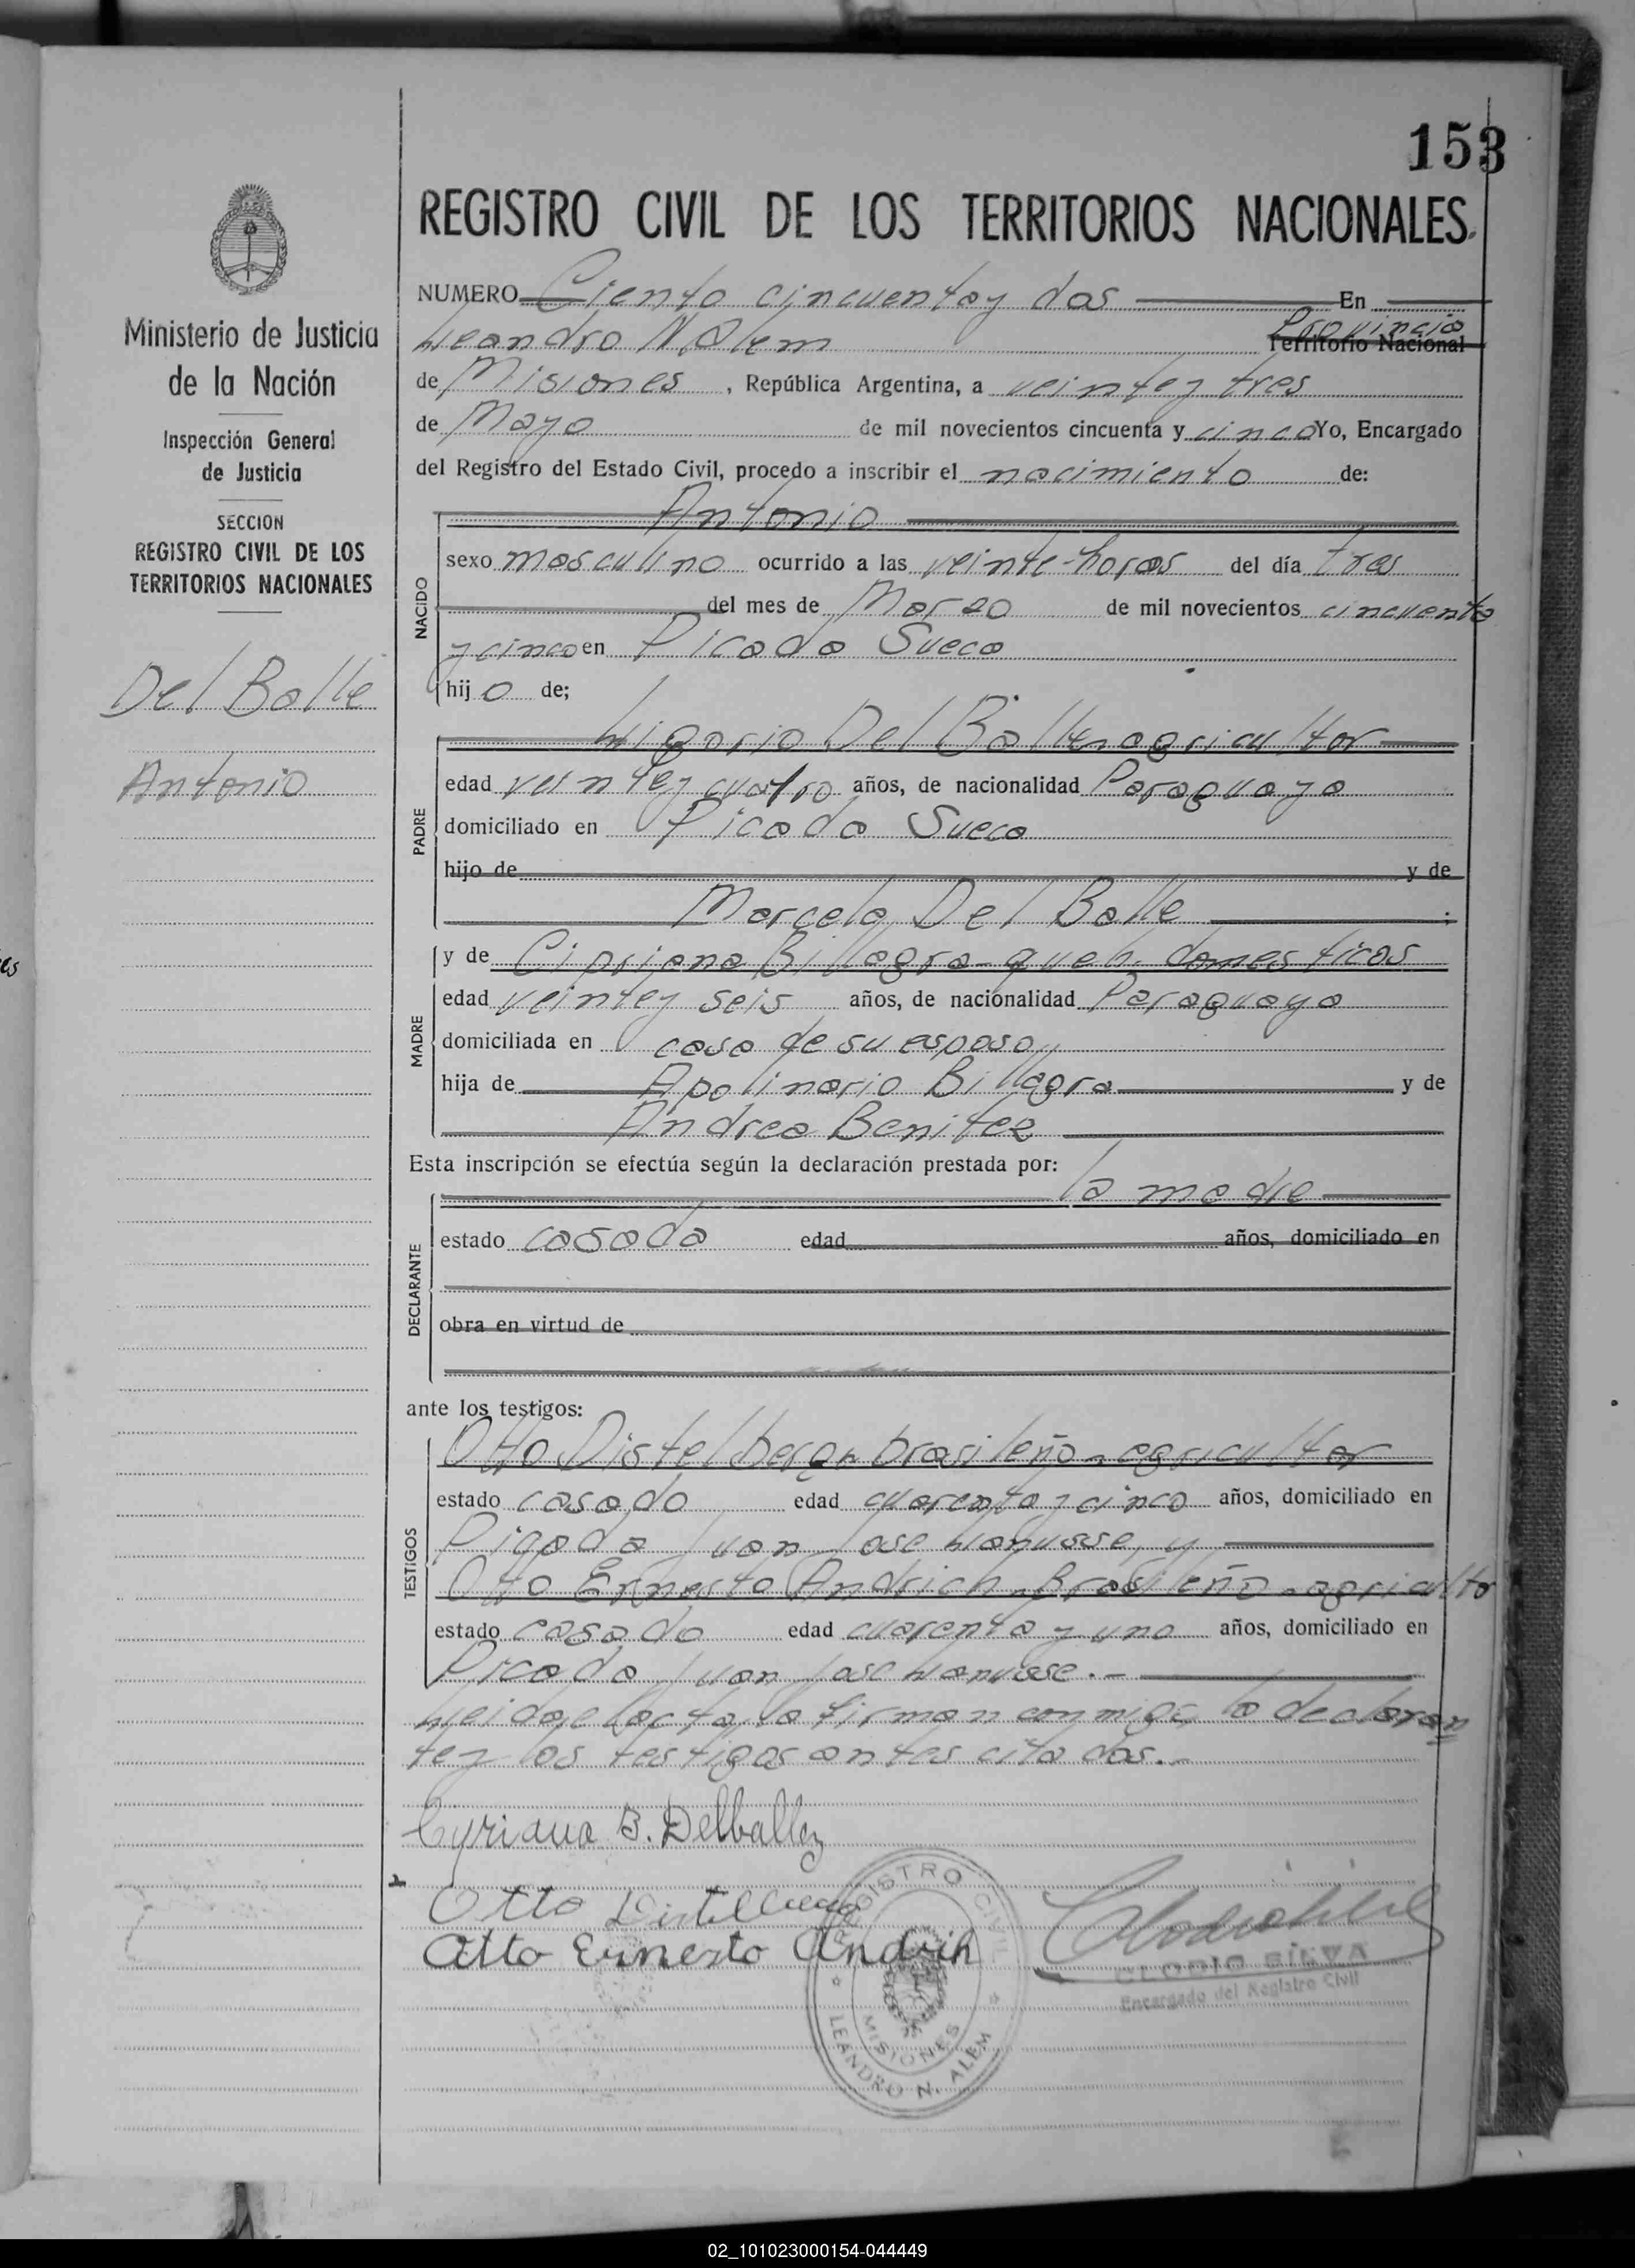 153
REGISTRO CIVIL DE LOS TERRITORIOS NACIONALES.
NUMERO Ciento cincuenta y dos En
Leandro N. Alem Provincia Territorio Nacional
de Misiones, República Argentina, a veinte y tres
de Mayo de mil novecientos cincuenta y cinco Yo, Encargado
del Registro del Estado Civil, procedo a inscribir el nacimiento de:
Antonio
NACIDO
sexo masculino ocurrido a las veinte-horas del día tres
del mes de Marzo de mil novecientos cincuenta
y cinco en Picada Sueca
hijo de;
Ligorio Del Balle agricultor
PADRE
edad veinte y cuatro años, de nacionalidad Paraguaya
domiciliado en Picada Sueca
hijo de y de
Marcela Del Balle ;
y de Cipriana Billagra-queh. domesticos
MADRE
edad veinte y seis años, de nacionalidad Paraguaya
domiciliada en casa de su esposo
hija de Apolinario Billagra y de
Andrea Benitez
Esta inscripción se efectúa según la declaración prestada por:
la madre
DECLARANTE
estado casada edad años, domiciliado en
obra en virtud de
ante los testigos:
TESTIGOS
Otto Distelberg brasileño-agricultor
estado casado edad cuarenta y cinco años, domiciliado en
Picada Juan Jose Lanusse, y
Otto Ernesto Andrich-Brasileño-agricultor
estado casado edad cuarenta y uno años, domiciliado en
Picada Juan Jose Lanusse.-
Leida el acta, la firman conmigo la declaran
te y los testigos antes citados.-
B. Delballe
Otto
Otto Ernesto Andrich
REGISTRO CIVIL
MISIONES
LEANDRO N. ALEM
CLODIO SILVA
Encargado del Registro Civil
Ministerio de Justicia
de la Nación
Inspección General
de Justicia
SECCION
REGISTRO CIVIL DE LOS
TERRITORIOS NACIONALES
Del Balle
Antonio
02_101023000154-044449